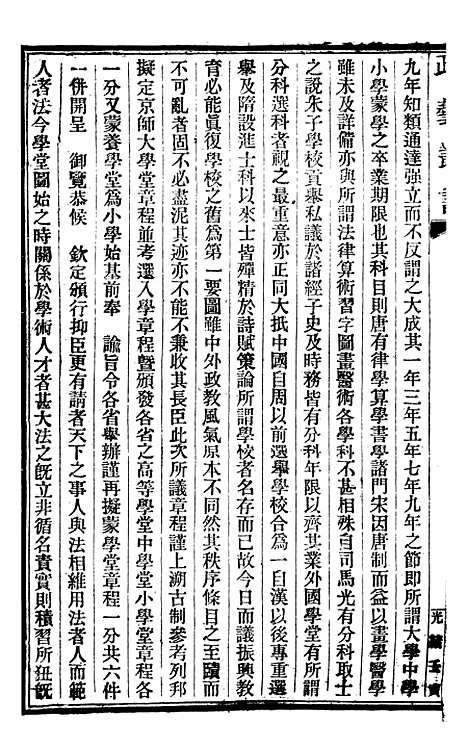 政藝叢書
光緒壬寅
九年知類通達强立而不反謂之大成其一年三年五年七年九年之節即所謂大學中學
小學蒙學之卒業期限也其科目則唐有律學算學書學諸門宋因唐制而益以畫學醫學
雖未及詳備亦與所謂法律算術習字圖畫醫術各學科不甚相殊自司馬光有分科取士
之說朱子學校貢舉私議於諸經子史及時務皆有分科年限以齊其業外國學堂有所謂
分科選科者視之最重意亦正同大抵中國自周以前選舉學校合為一自漢以後專重選
舉及隋設進士科以來士皆殫精於詩賦策論所謂學校者名存而已故今日而議振興教
育必能眞復學校之舊為第一要圖雖中外政教風氣原本不同然其秩序條目之至賾而
不可亂者固不必盡泥其迹亦不能不兼收其長臣此次所議章程謹上溯古制參考列邦
擬定京師大學堂章程並考選入學章程暨頒發各省之高等學堂中學堂小學堂章程各
一分又蒙養學堂為小學始基前奉　諭旨令各省舉辦謹再擬蒙學堂章程一分共六件
一併開呈　御覽恭候　欽定頒行抑臣更有請者天下之事人與法相維用法者人而範
人者法今學堂圖始之時關係於學術人才者甚大法之旣立非循名責實則積習所狃旣